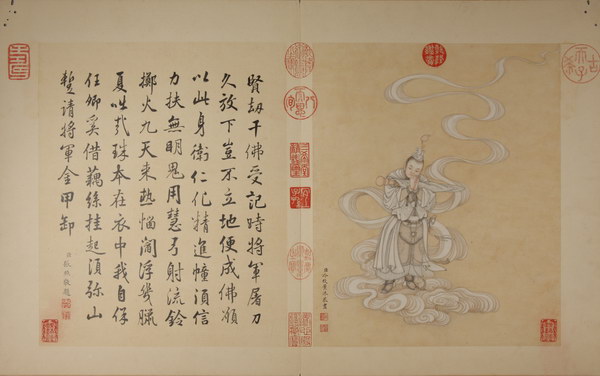 賢劫千佛受記時將軍屠刀
久放下豈不立地便成佛願
以此身衛仁化精進幢須信
力扶無明鬼用慧弓射流鈴
擲火九天來熱惱閻浮幾臘
夏咄哉珠本在衣中我自保
任卿奚借藕絲挂起須彌山
暫請將軍金甲卸
敬題
古稀天子